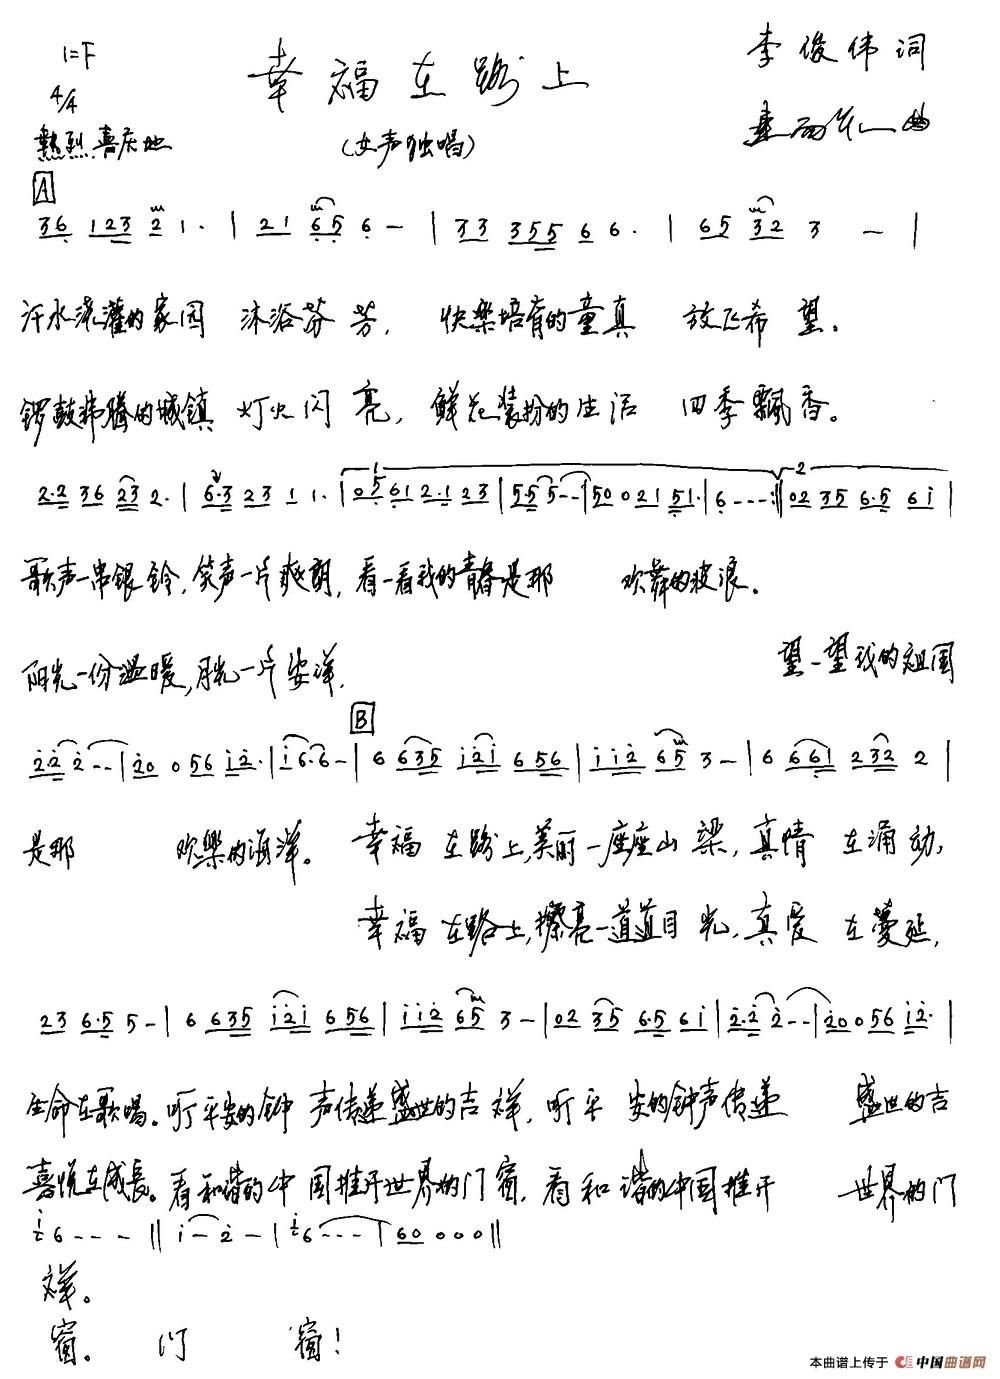 1=F
幸福在路上
李俊伟词
4/4
曲
热烈.喜庆地
(女声独唱)
A
36 123 2 1. | 21 65 6 - | 33 355 6 6. | 65 32 3 - |
汗水浇灌的家园 沐浴芬芳, 快樂培育的童真 放飞希望。
锣鼓沸腾的城镇 灯火闪亮, 鲜花装扮的生活 四季飘香。
2.2 36 23 2. | 6.3 23 1 1. | 0561 2.1 23 | 5.5 5 -- | 50 0 21 51. | 6 --- :|| 02 35 6.5 6i |
歌声一串银铃,笑声一片爽朗, 看一看我的青春是那 欢舞的波浪。
阳光一份温暖,月光一片安详. 望一望我的祖国
2.2 2 -- | 20 0 56 i2. | i 6. 6 - | B 6 635 i2i 656 | i i2 65 3 - | 6 661 232 2 |
是那 欢樂的海洋。 幸福 在路上,美丽一座座山梁,真情 在涌动,
幸福 在路上,擦亮一道道目光,真爱 在蔓延,
23 6.5 5 - | 6 635 i2i 656 | i i2 65 3 - | 02 35 6.5 6i | 2.2 2 -- | 20 0 56 i2. |
生命在歌唱。听平安的钟声传递盛世的吉祥, 听平安的钟声传递 盛世的吉
喜悦在成長。看和谐的中国推开世界的门窗, 看和谐的中国推开 世界的门
6 --- || i - 2 - | 6 --- | 60 0 0 0 ||
祥。
窗。 门 窗!
本曲谱上传于 中国曲谱网